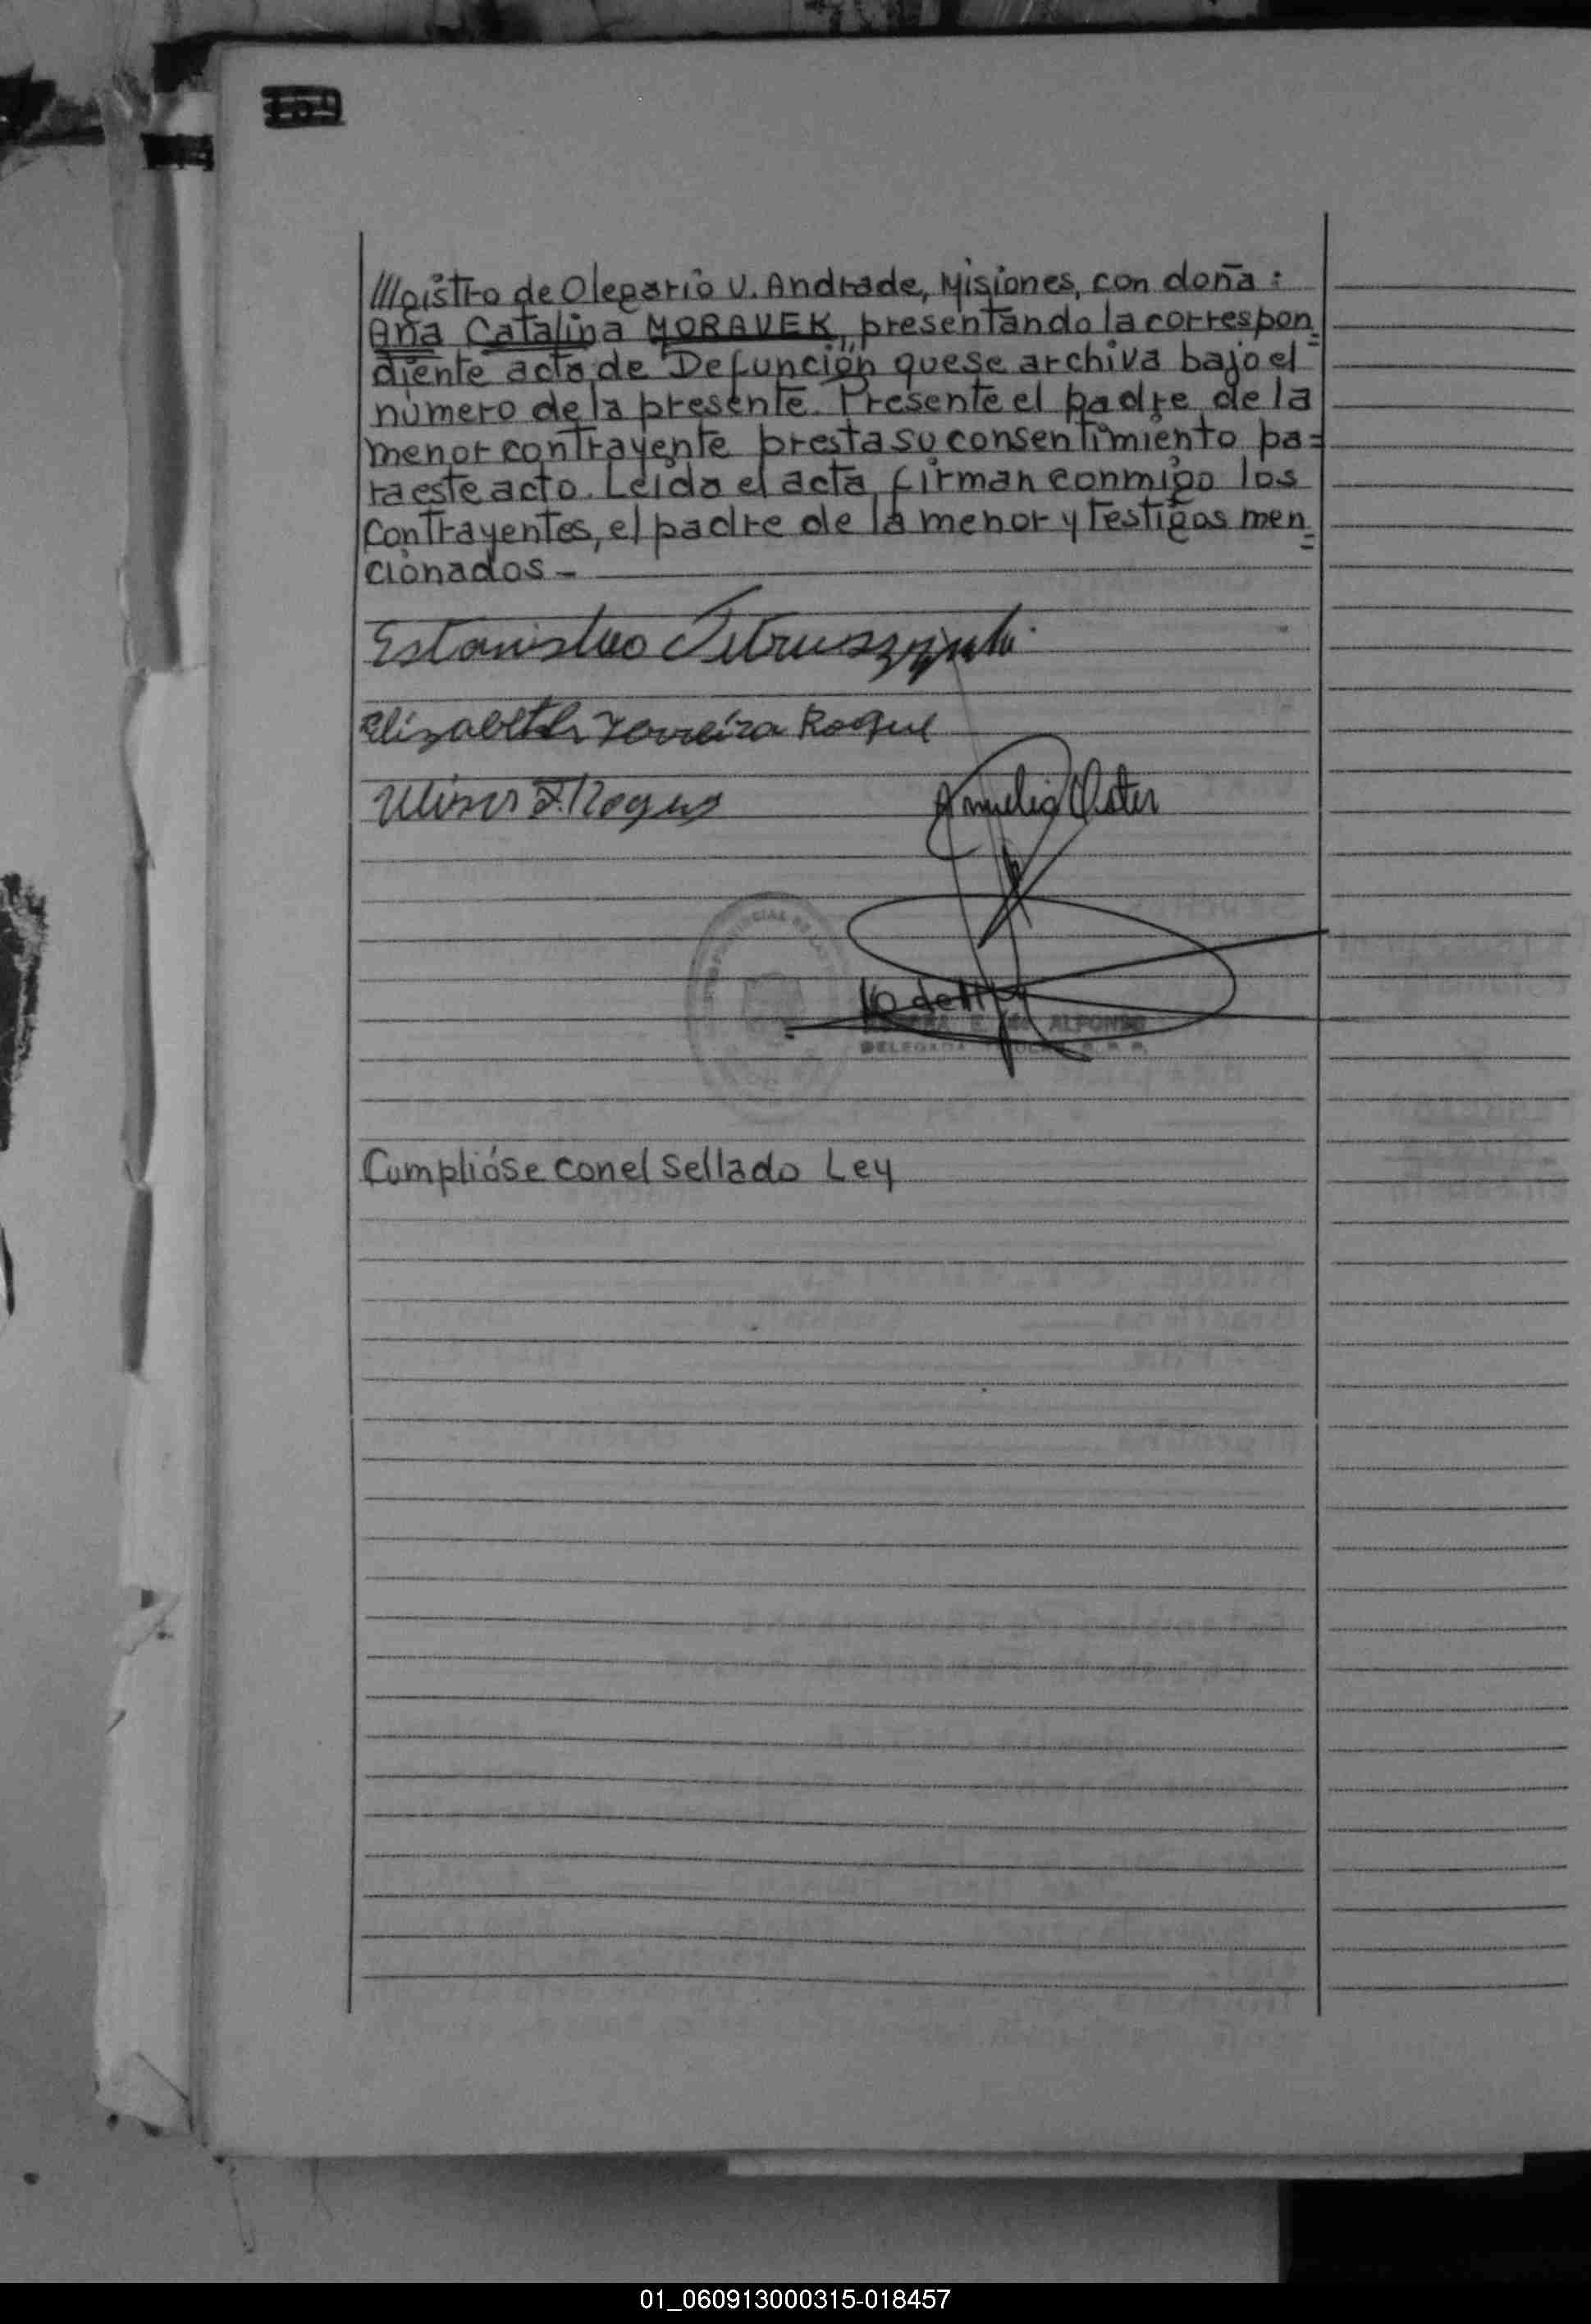 ///gistro de Olegario V. Andrade, Misiones, con doña:
Ana Catalina MORAVEK, presentando la correspon=
diente acta de Defunción que se archiva bajo el
número de la presente. Presente el padre de la
menor contrayente presta su consentimiento pa=
ra este acto. Leída el acta, firman conmigo los
contrayentes, el padre de la menor y testigos men=
cionados-
Estanislao
Elizabeth Ferreira Roque
Ulises F. Roque
E. de ALFONSO
DELEGADA TITULAR
Cumplióse con el sellado Ley
01_060913000315-018457